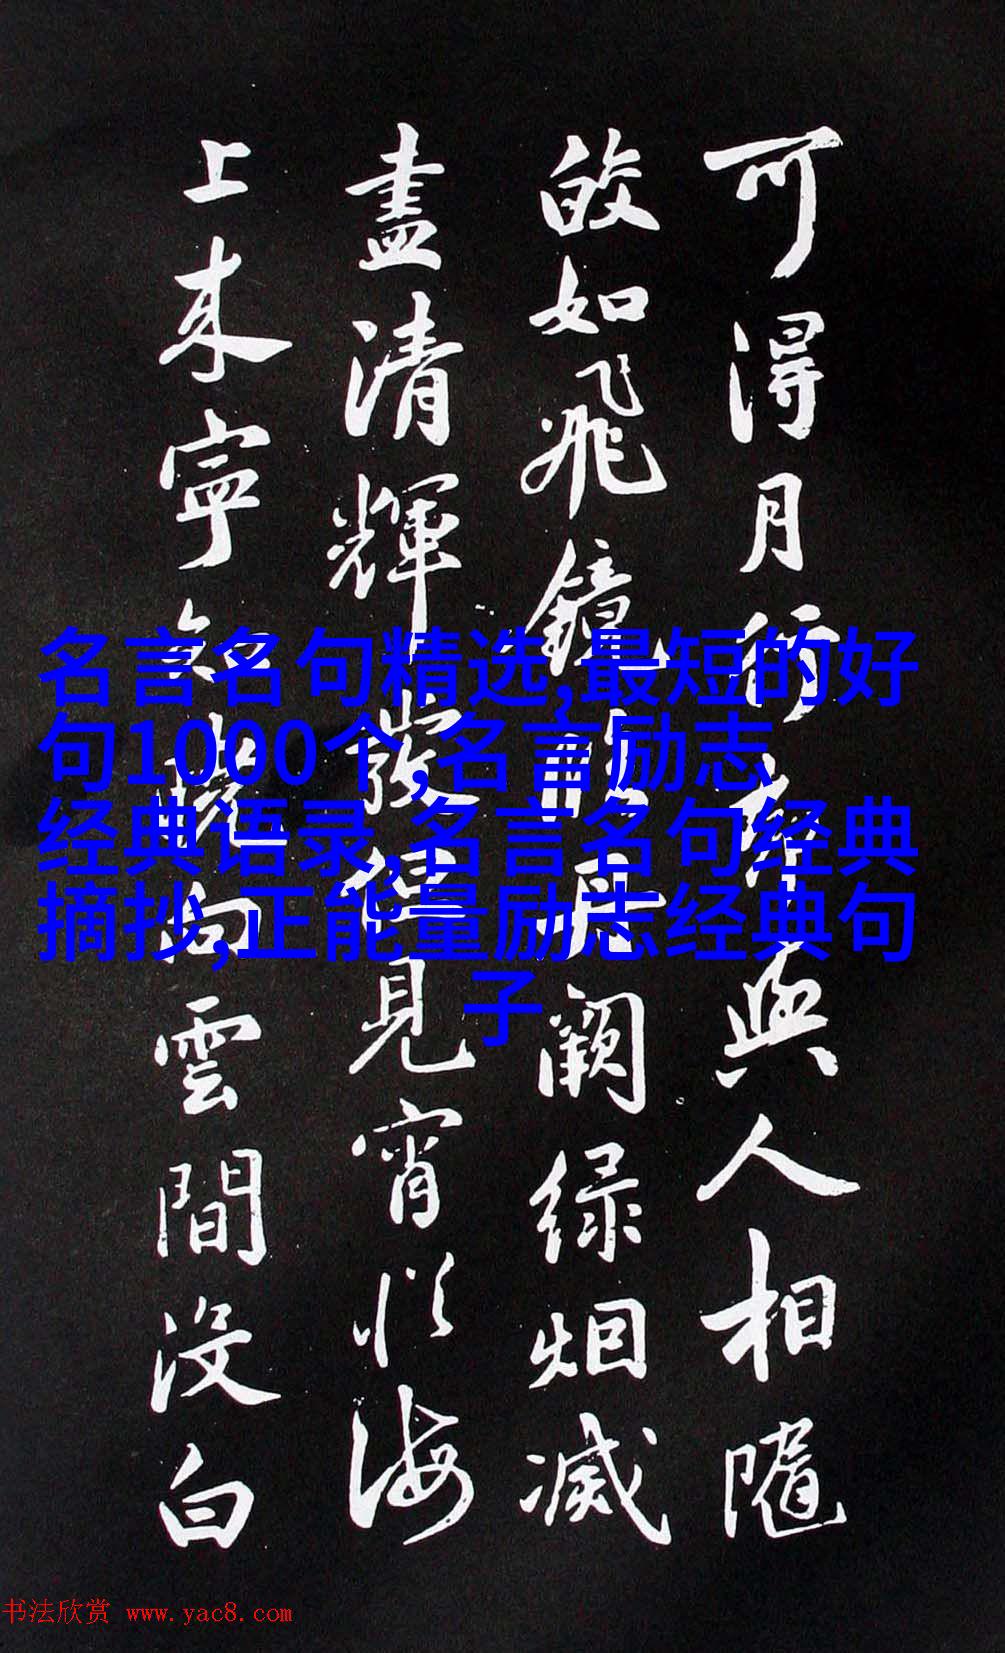 可得月行却與人相隨
皎如飛鏡臨丹闕緑烟滅
盡清輝發但見宵從海
上来寧知曉向雲間没白
名言名句精选,最短的好
句1000个,名言励志
经典语录,名言名句经典
摘抄,正能量励志经典句
子
书法欣赏 www.yac8.com